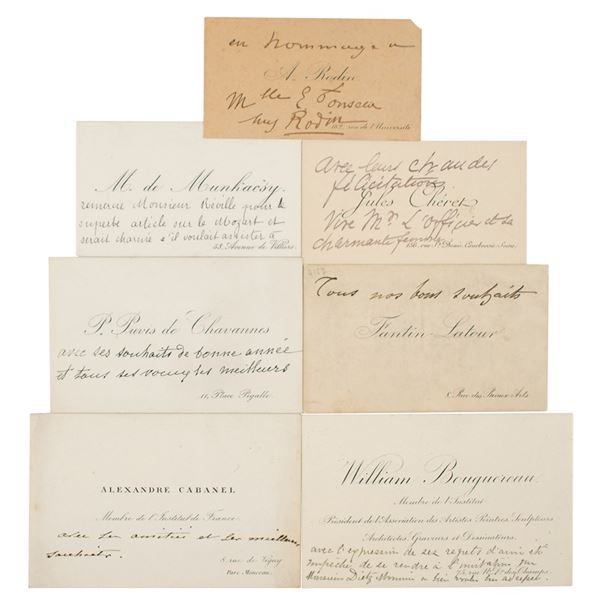 en hommage a
A. Rodin
Mlle E Fonseca
Aug Rodin
182, rue de l'Université
M. de Munkácsy
remercie Monsieur Réville pour le
superbe article sur le Mozart et
serait charmé s'il voulait assister à
53, Avenue de Villiers
avec leurs chaudes
félicitations
Jules Chéret
Vive Mr. L'Officier et sa
charmante femme
156, rue St Denis, Courbevoie, Seine.
P. Puvis de Chavannes
avec ses souhaits de bonne année
et tous ses voeux les meilleurs
11, Place Pigalle
4157
Tous nos bons souhaits
Fantin-Latour
8, Rue des Beaux Arts
ALEXANDRE CABANEL
Membre de l'Institut de France
avec ses amitiés et les meilleurs
souhaits.
8, rue de Vigny
Parc Monceau.
William Bouguereau
Membre de l'Institut
Président de l'Association des Artistes Peintres Sculpteurs
Architectes Graveurs et Dessinateurs.
avec l'expression de ses regrets d'avoir été
empêché de se rendre à l'invitation que
75, rue Ne. De. des Champs.
Monsieur Dietz Monnin a bien voulu lui adresser